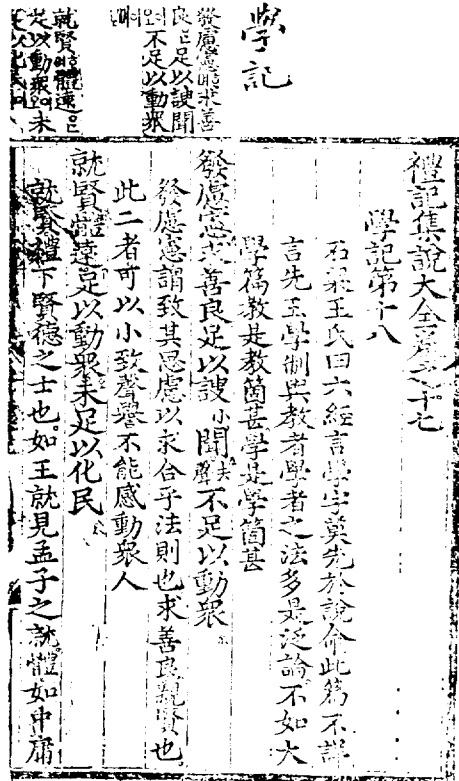 學記
發慮憲求善
良足以謏聞
不足以動衆
就賢體遠
足以動衆未
足以化民
禮記集說大全卷之十七
學記第十八
石梁王氏曰六經言學字莫先於說命此篇不詳
言先王學制與教者學者之法多是泛論不如大
學篇教是教箇甚學是學箇甚
發慮憲求善良足以謏小聞去聲不足以動衆
發慮憲謂致其思慮以求合乎法則也求善良親賢也
此二者可以小致聲譽不能感動衆人
就賢體遠足以動衆未足以化民
就賢禮下賢德之士也如王就見孟子之就體如中庸